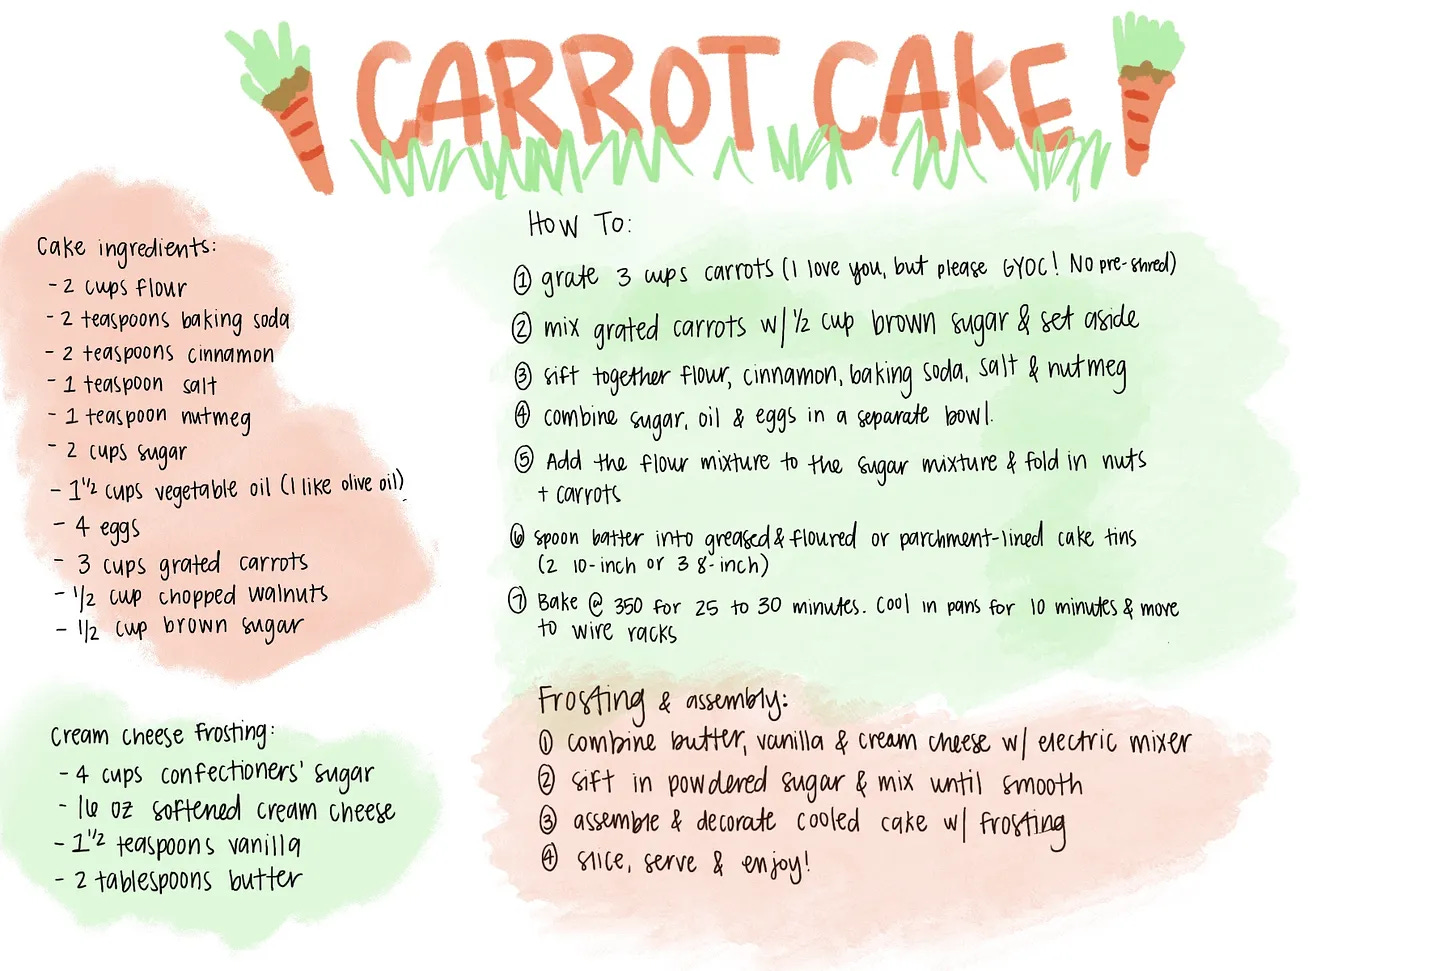 CARROT CAKE
Cake ingredients:
- 2 cups flour
- 2 teaspoons baking soda
- 2 teaspoons cinnamon
- 1 teaspoon salt
- 1 teaspoon nutmeg
- 2 cups sugar
- 1 1/2 cups vegetable oil (I like olive oil)
- 4 eggs
- 3 cups grated carrots
- 1/2 cup chopped walnuts
- 1/2 cup brown sugar
Cream cheese frosting:
- 4 cups confectioners' sugar
- 16 oz softened cream cheese
- 1 1/2 teaspoons vanilla
- 2 tablespoons butter
How To:
① grate 3 cups carrots (I love you, but please GYOC! No pre-shred)
② mix grated carrots w/ 1/2 cup brown sugar & set aside
③ sift together flour, cinnamon, baking soda, salt & nutmeg
④ combine sugar, oil & eggs in a separate bowl.
⑤ Add the flour mixture to the sugar mixture & fold in nuts
+ carrots
⑥ spoon batter into greased & floured or parchment-lined cake tins
(2 10-inch or 3 8-inch)
⑦ Bake @ 350 for 25 to 30 minutes. Cool in pans for 10 minutes & move
to wire racks
Frosting & assembly:
① combine butter, vanilla & cream cheese w/ electric mixer
② sift in powdered sugar & mix until smooth
③ assemble & decorate cooled cake w/ frosting
④ slice, serve & enjoy!